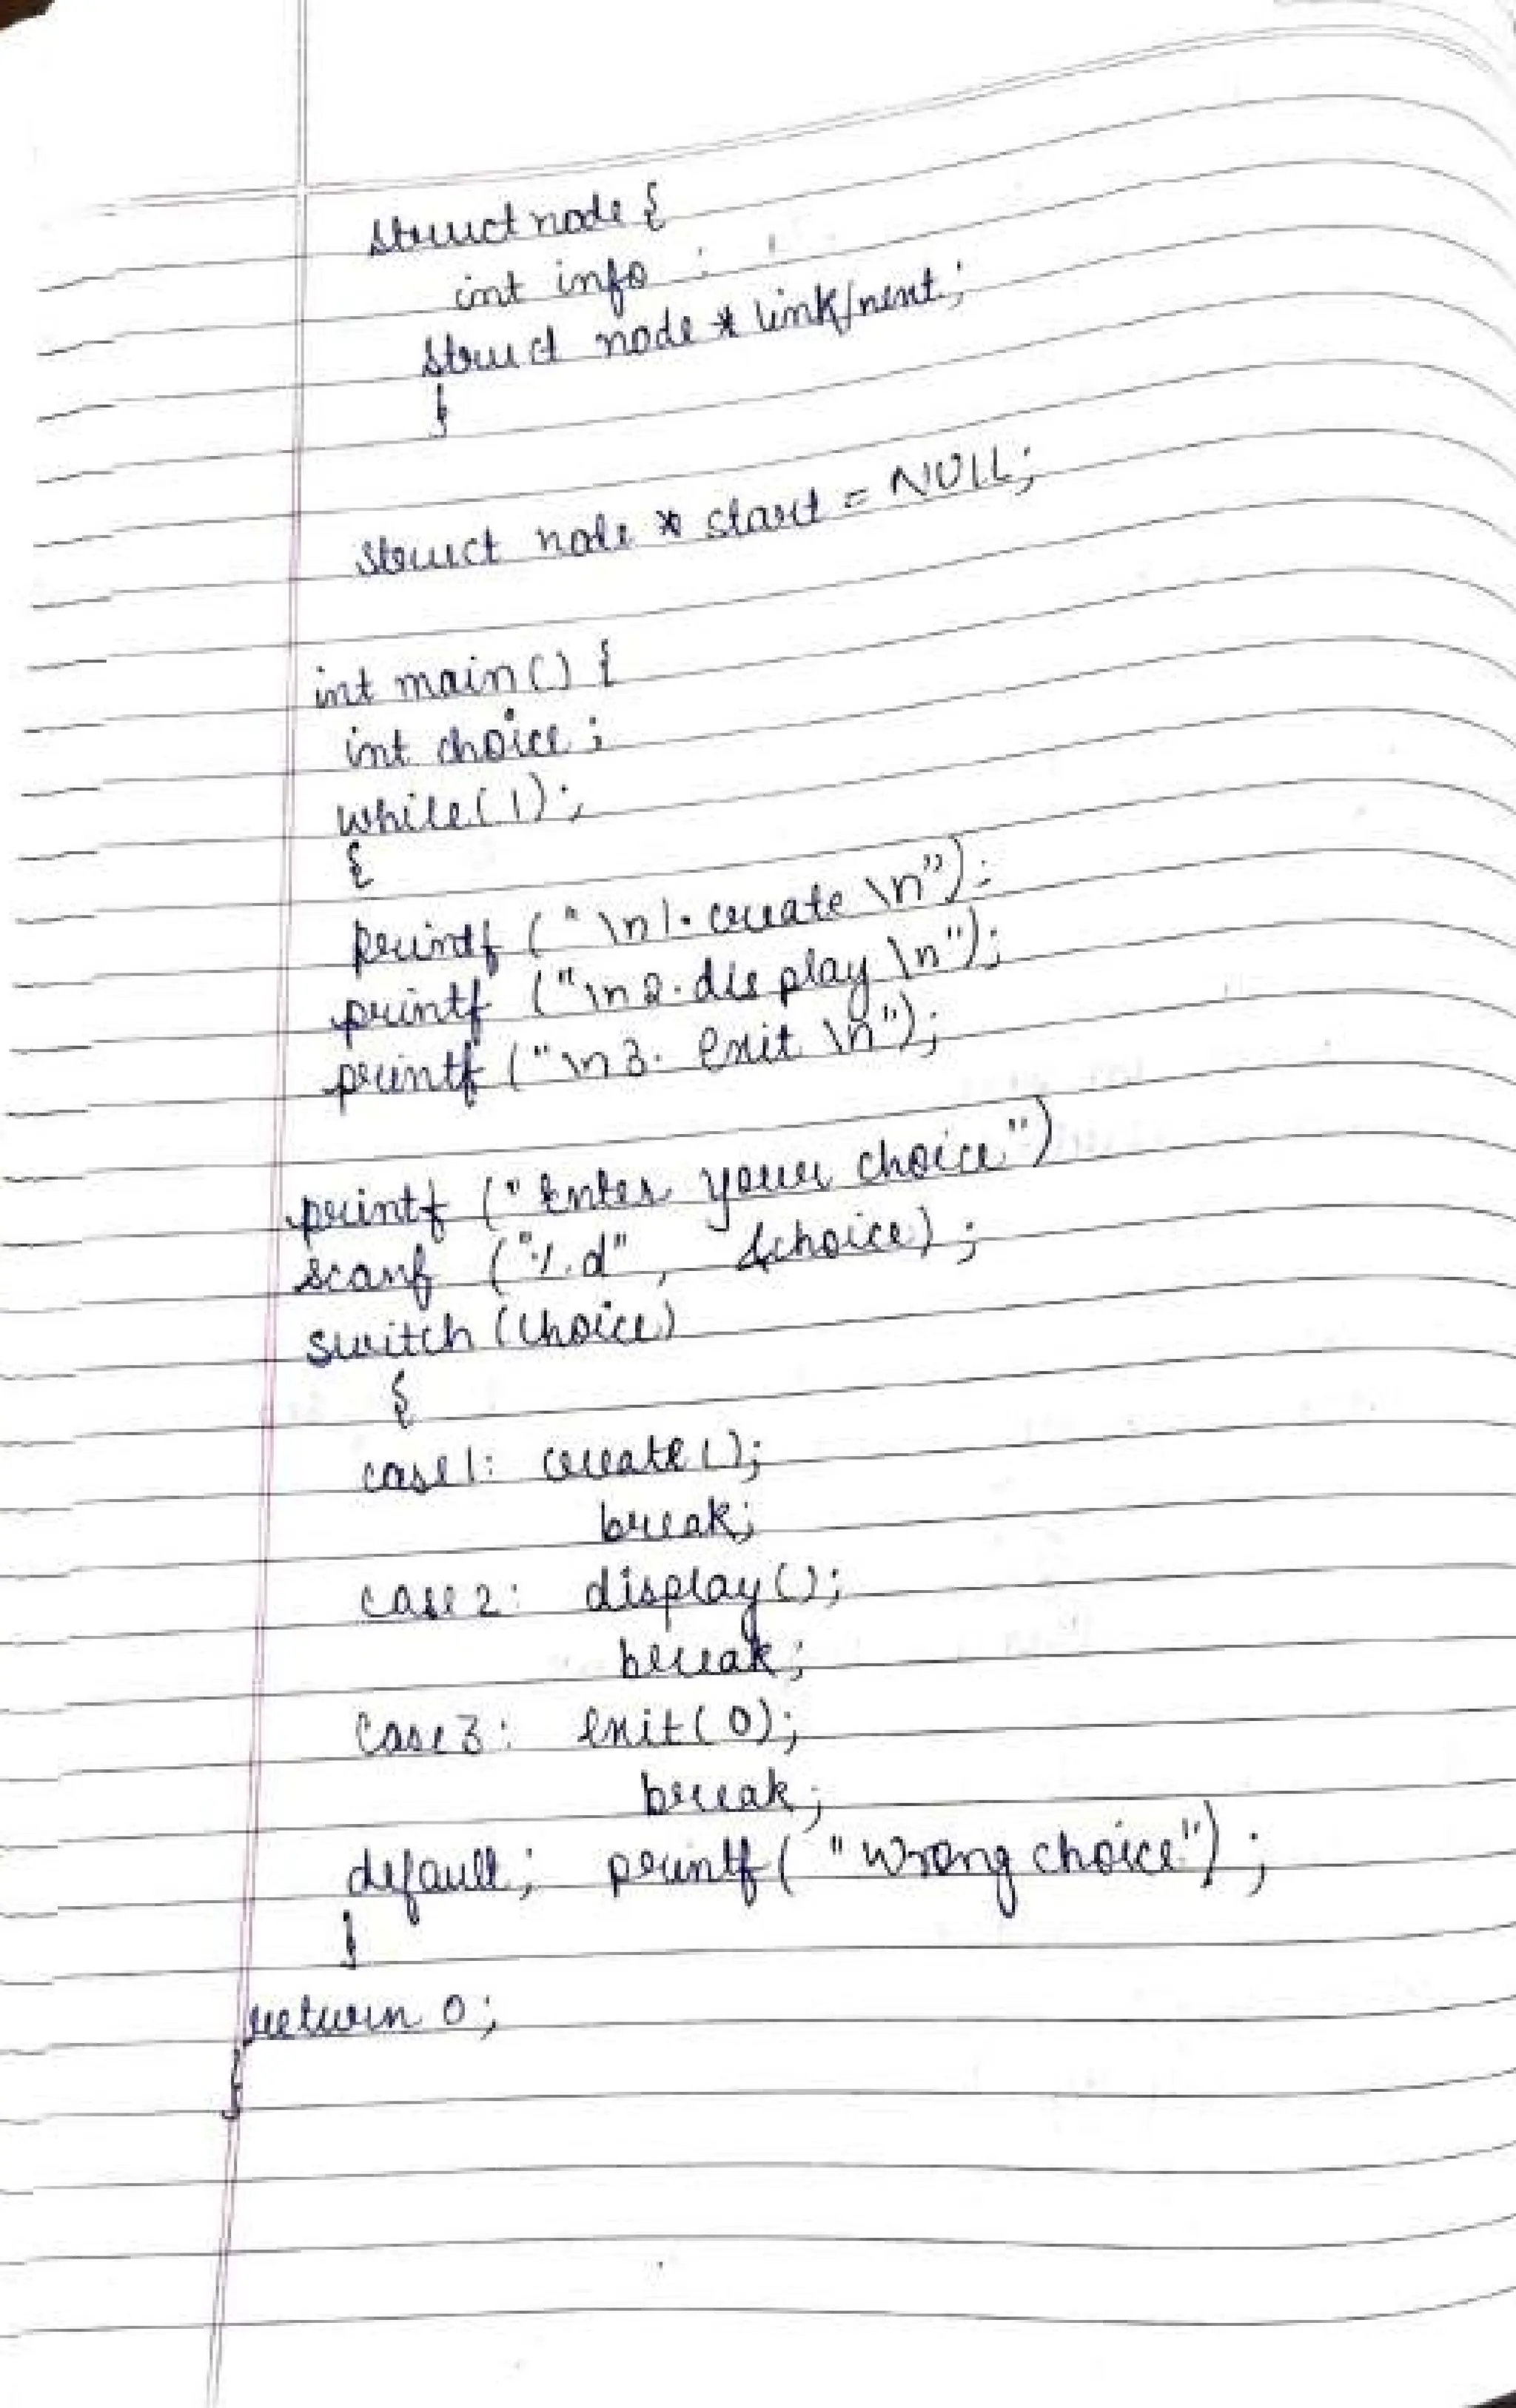 struct node {
int info ;
struct node * link/next;
}
struct node * start = NULL;
int main() {
int choice ;
while(1);
{
printf ("\n1. create \n");
printf ("\n2. display \n");
printf ("\n3. exit \n");
printf ("Enter your choice")
scanf ("%d", &choice) ;
switch (choice)
{
case1: create();
break;
case2: display();
break;
case3: exit(0);
break;
default; printf( "wrong choice") ;
}
return 0;
}